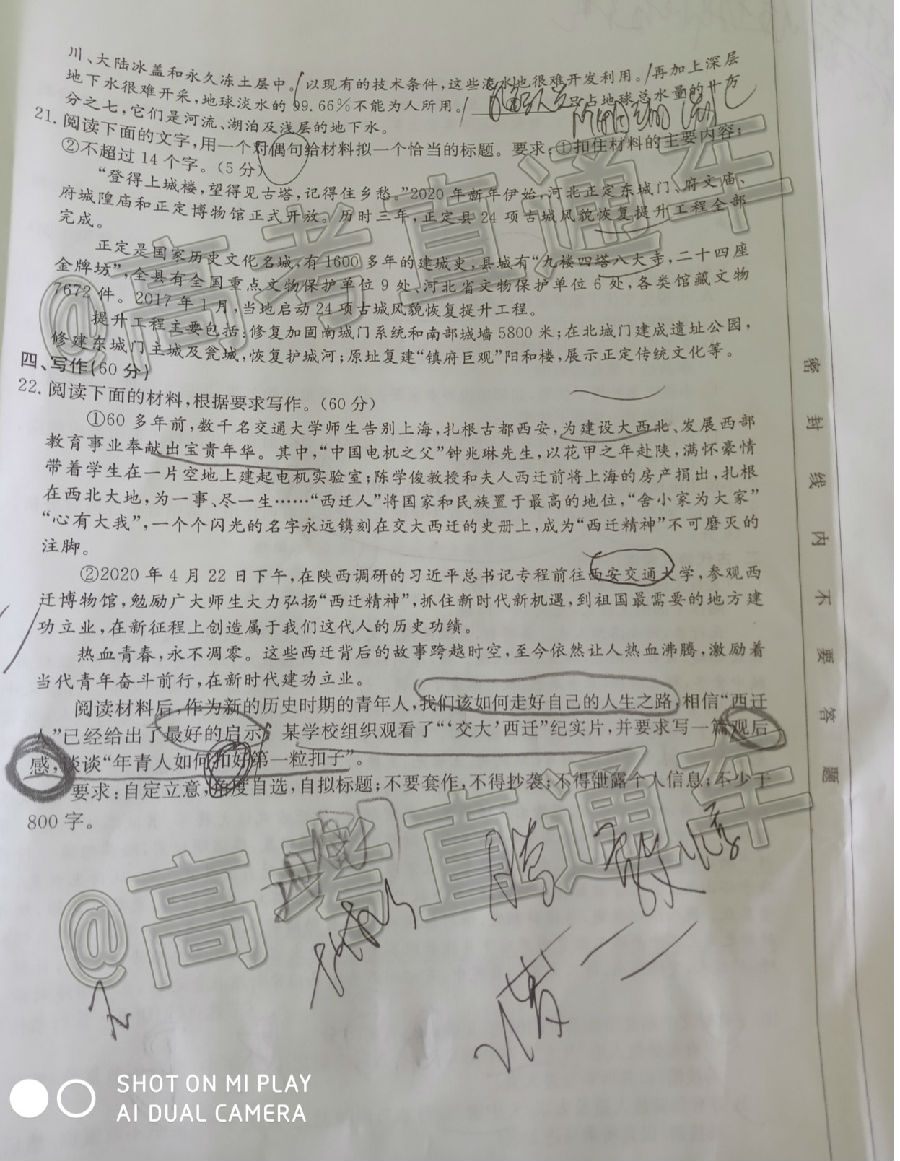 川、大陆冰盖和永久冻土层中。以现有的技术条件,这些淡水也很难开发利用。再加上深层
地下水很难开采,地球淡水的99.66%不能为人所用。 只占地球总水量的十万
分之七,它们是河流、湖泊及浅层的地下水。
21. 阅读下面的文字,用一个对偶句给材料拟一个恰当的标题。要求:①扣住材料的主要内容;
②不超过14个字。(5分)
“登得上城楼,望得见古塔,记得住乡愁。”2020年新年伊始,河北正定东城门、府文庙、
府城隍庙和正定博物馆正式开放。历时三年,正定县24项古城风貌恢复提升工程全部
完成。
正定是国家历史文化名城,有1600多年的建城史,县城有“九楼四塔八大寺,二十四座
金牌坊”,全县有全国重点文物保护单位9处、河北省文物保护单位6处,各类馆藏文物
7672件。2017年1月,当地启动24项古城风貌恢复提升工程。
提升工程主要包括:修复加固南城门系统和南部城墙5800米;在北城门建成遗址公园,
修建东城门主城及瓮城,恢复护城河;原址复建“镇府巨观”阳和楼,展示正定传统文化等。
四、写作(60分)
22. 阅读下面的材料,根据要求写作。(60分)
①60多年前,数千名交通大学师生告别上海,扎根古都西安,为建设大西北、发展西部
教育事业奉献出宝贵年华。其中,“中国电机之父”钟兆琳先生,以花甲之年赴陕,满怀豪情
带着学生在一片空地上建起电机实验室;陈学俊教授和夫人西迁前将上海的房产捐出,扎根
在西北大地,为一事、尽一生……“西迁人”将国家和民族置于最高的地位,“舍小家为大家”
“心有大我”,一个个闪光的名字永远镌刻在交大西迁的史册上,成为“西迁精神”不可磨灭的
注脚。
②2020年4月22日下午,在陕西调研的习近平总书记专程前往西安交通大学,参观西
迁博物馆,勉励广大师生大力弘扬“西迁精神”,抓住新时代新机遇,到祖国最需要的地方建
功立业,在新征程上创造属于我们这代人的历史功绩。
热血青春,永不凋零。这些西迁背后的故事跨越时空,至今依然让人热血沸腾,激励着
当代青年奋斗前行,在新时代建功立业。
阅读材料后,作为新的历史时期的青年人,我们该如何走好自己的人生之路,相信“西迁
人”已经给出了最好的启示。某学校组织观看了“‘交大’西迁”纪实片,并要求写一篇观后
感,谈谈“年青人如何扣好第一粒扣子”。
要求:自定立意,角度自选,自拟标题;不要套作,不得抄袭;不得泄露个人信息;不少于
800字。
密封线内不要答题
@高考直通车
@高考直通车
SHOT ON MI PLAY
AI DUAL CAMERA